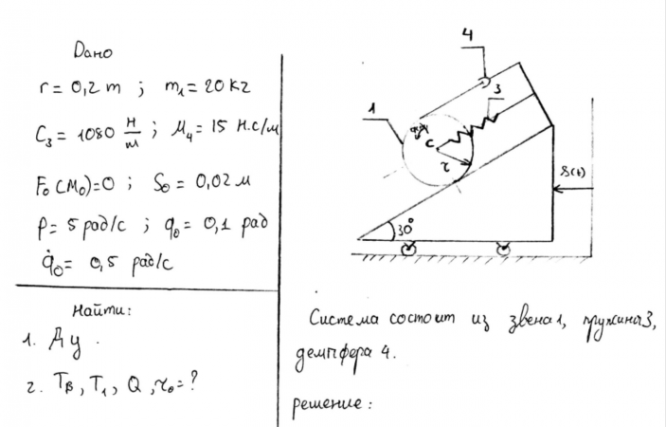 Дано
r = 0,2 m ; m₁ = 20 кг
C₃ = 1080 Н/m ; μ₄ = 15 Н.с/м
F₀(M₀)=0 ; S₀ = 0,02 м
p = 5 рад/с ; q₀ = 0,1 рад
q̇₀ = 0,5 рад/с
Найти:
1. Ду .
2. Tв , T₁ , Q , τ₀ = ?
4
3
1
C
r
30°
S(t)
Система состоит из звена 1, пружина 3,
демпфера 4.
решение :